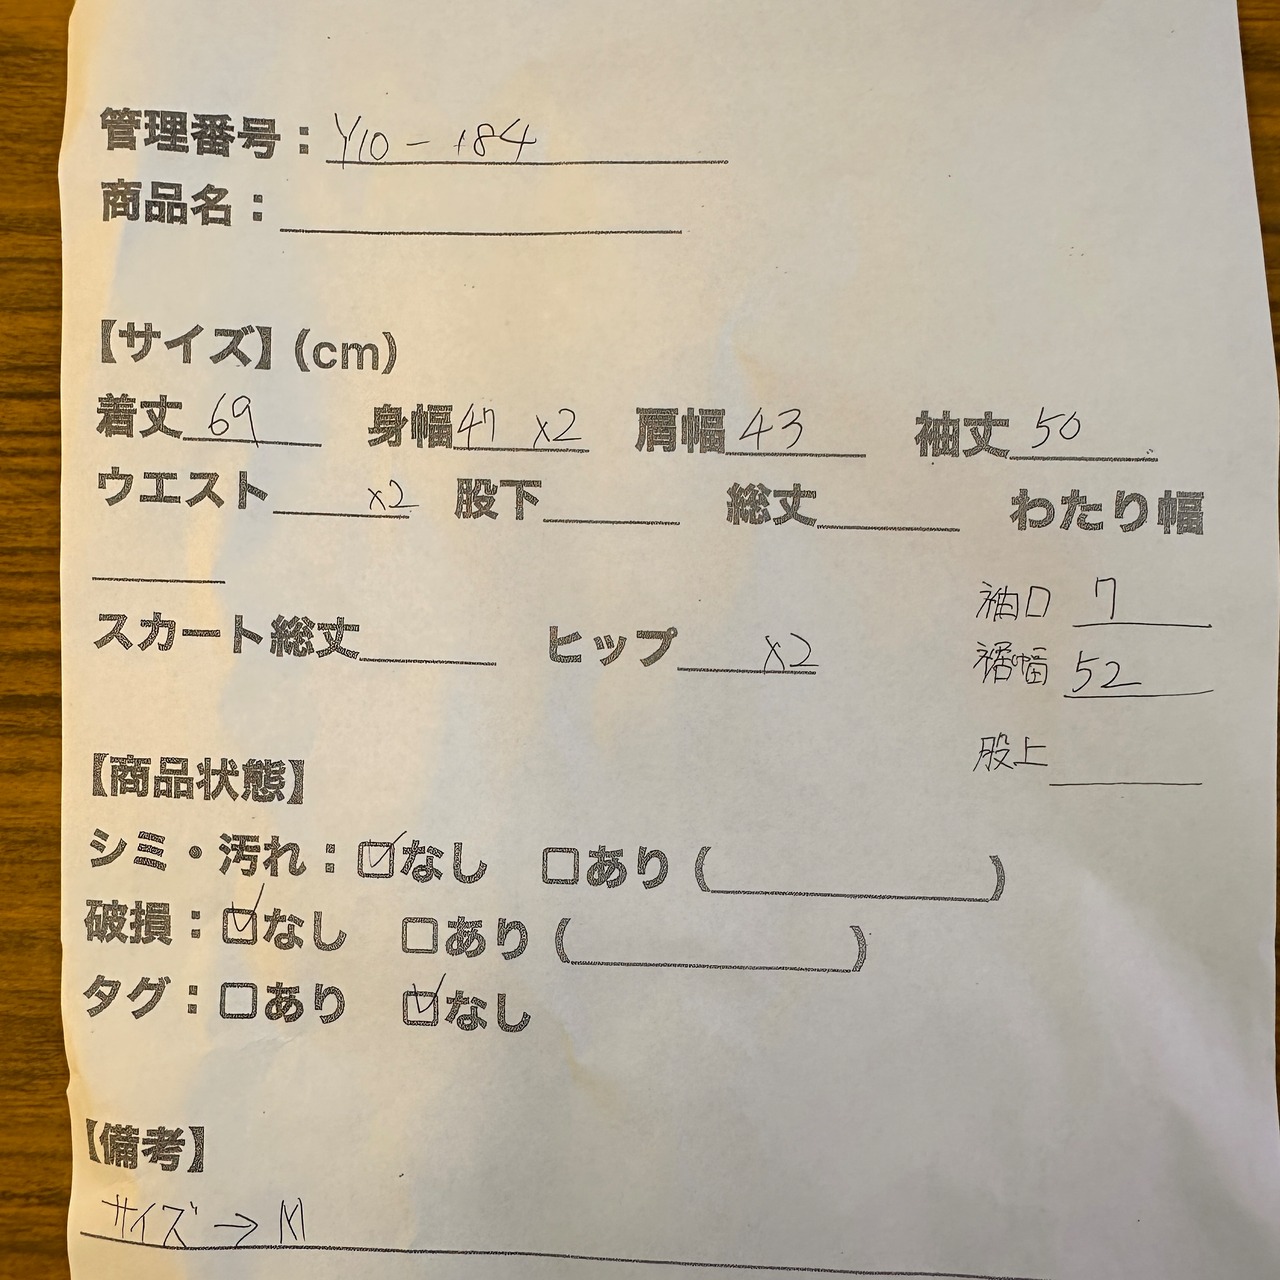 管理番号：Y10-184
商品名：
【サイズ】(cm)
着丈 69 身幅 47 x2 肩幅 43 袖丈 50
ウエスト x2 股下 総丈 わたり幅
袖口 7
スカート総丈 ヒップ x2
裾幅 52
股上
【商品状態】
シミ・汚れ：☑なし □あり( )
破損：☑なし □あり( )
タグ：□あり ☑なし
【備考】
サイズ→M